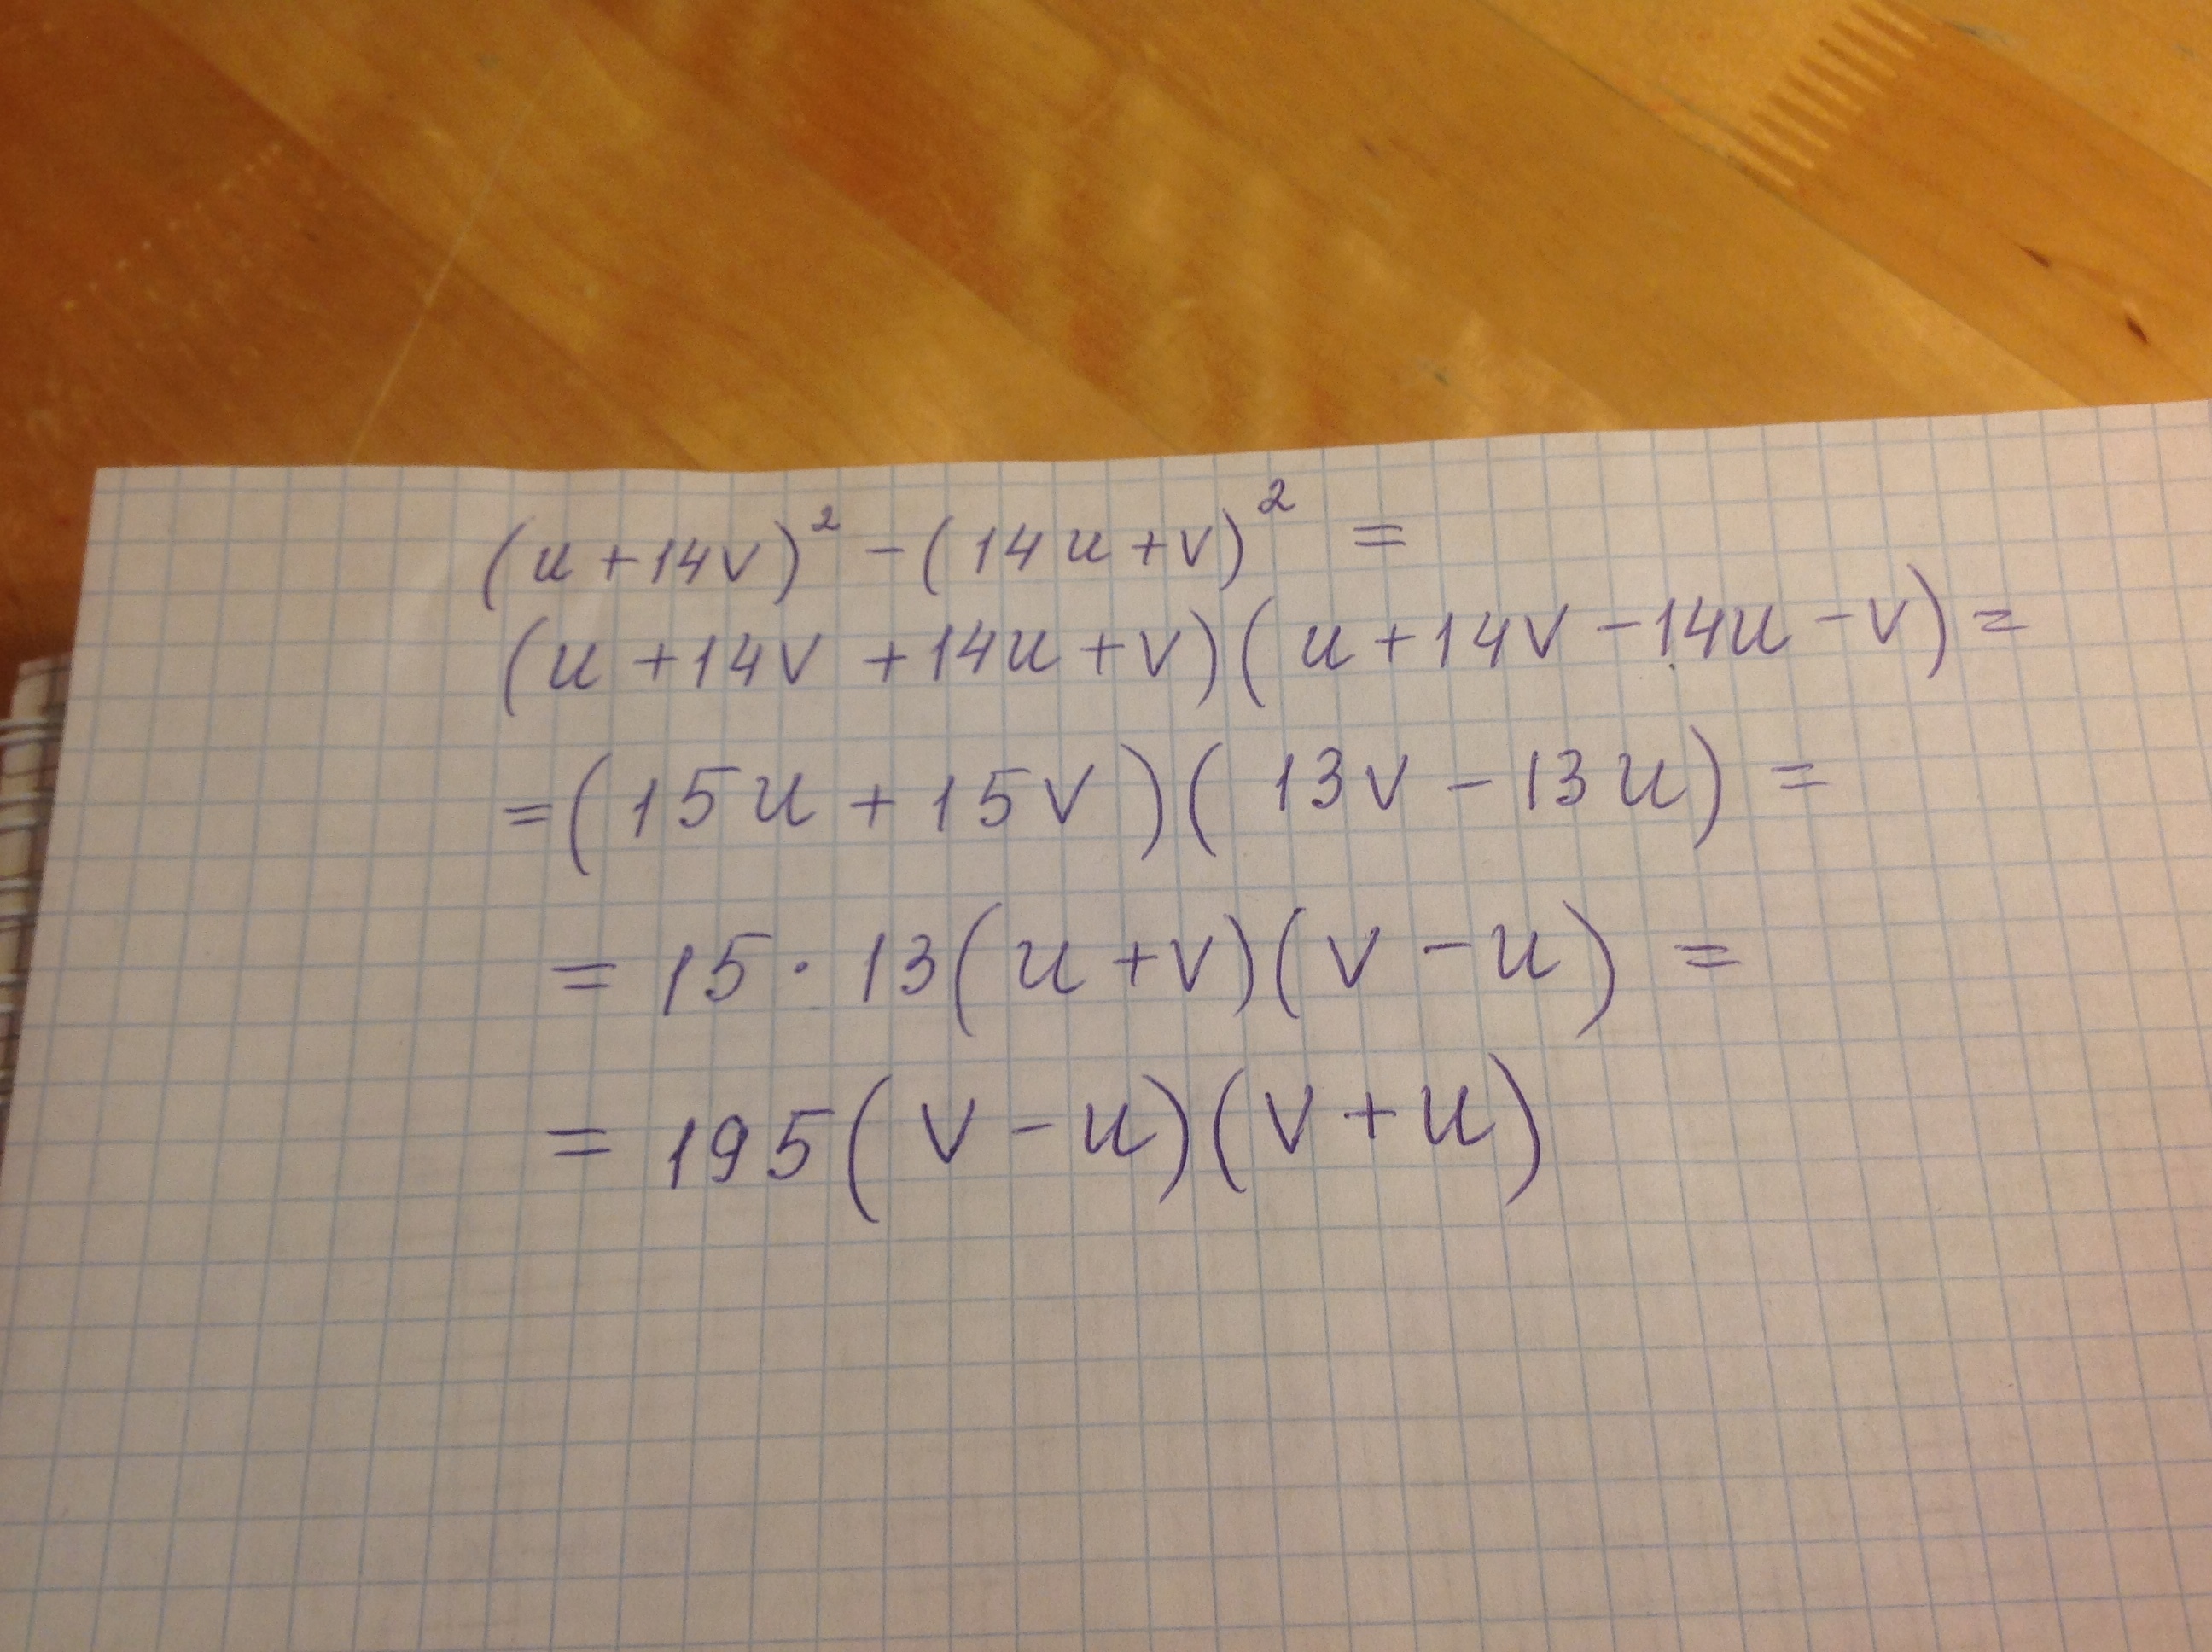 (u+14v)² - (14u+v)² =
(u+14v+14u+v)(u+14v-14u-v) =
= (15u+15v)(13v-13u) =
= 15·13(u+v)(v-u) =
= 195(v-u)(v+u)